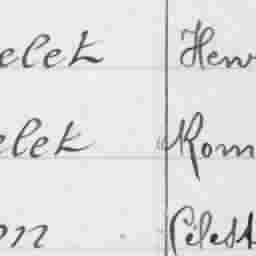 elet Henr
elet Rom
on Célest